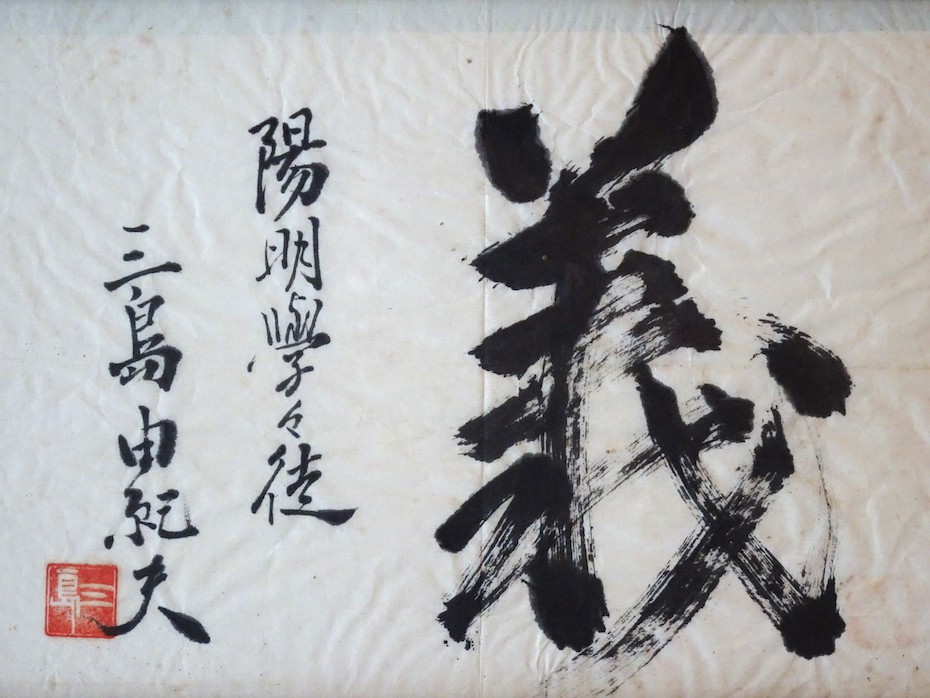 義
陽明學々徒
三島由紀夫
三島